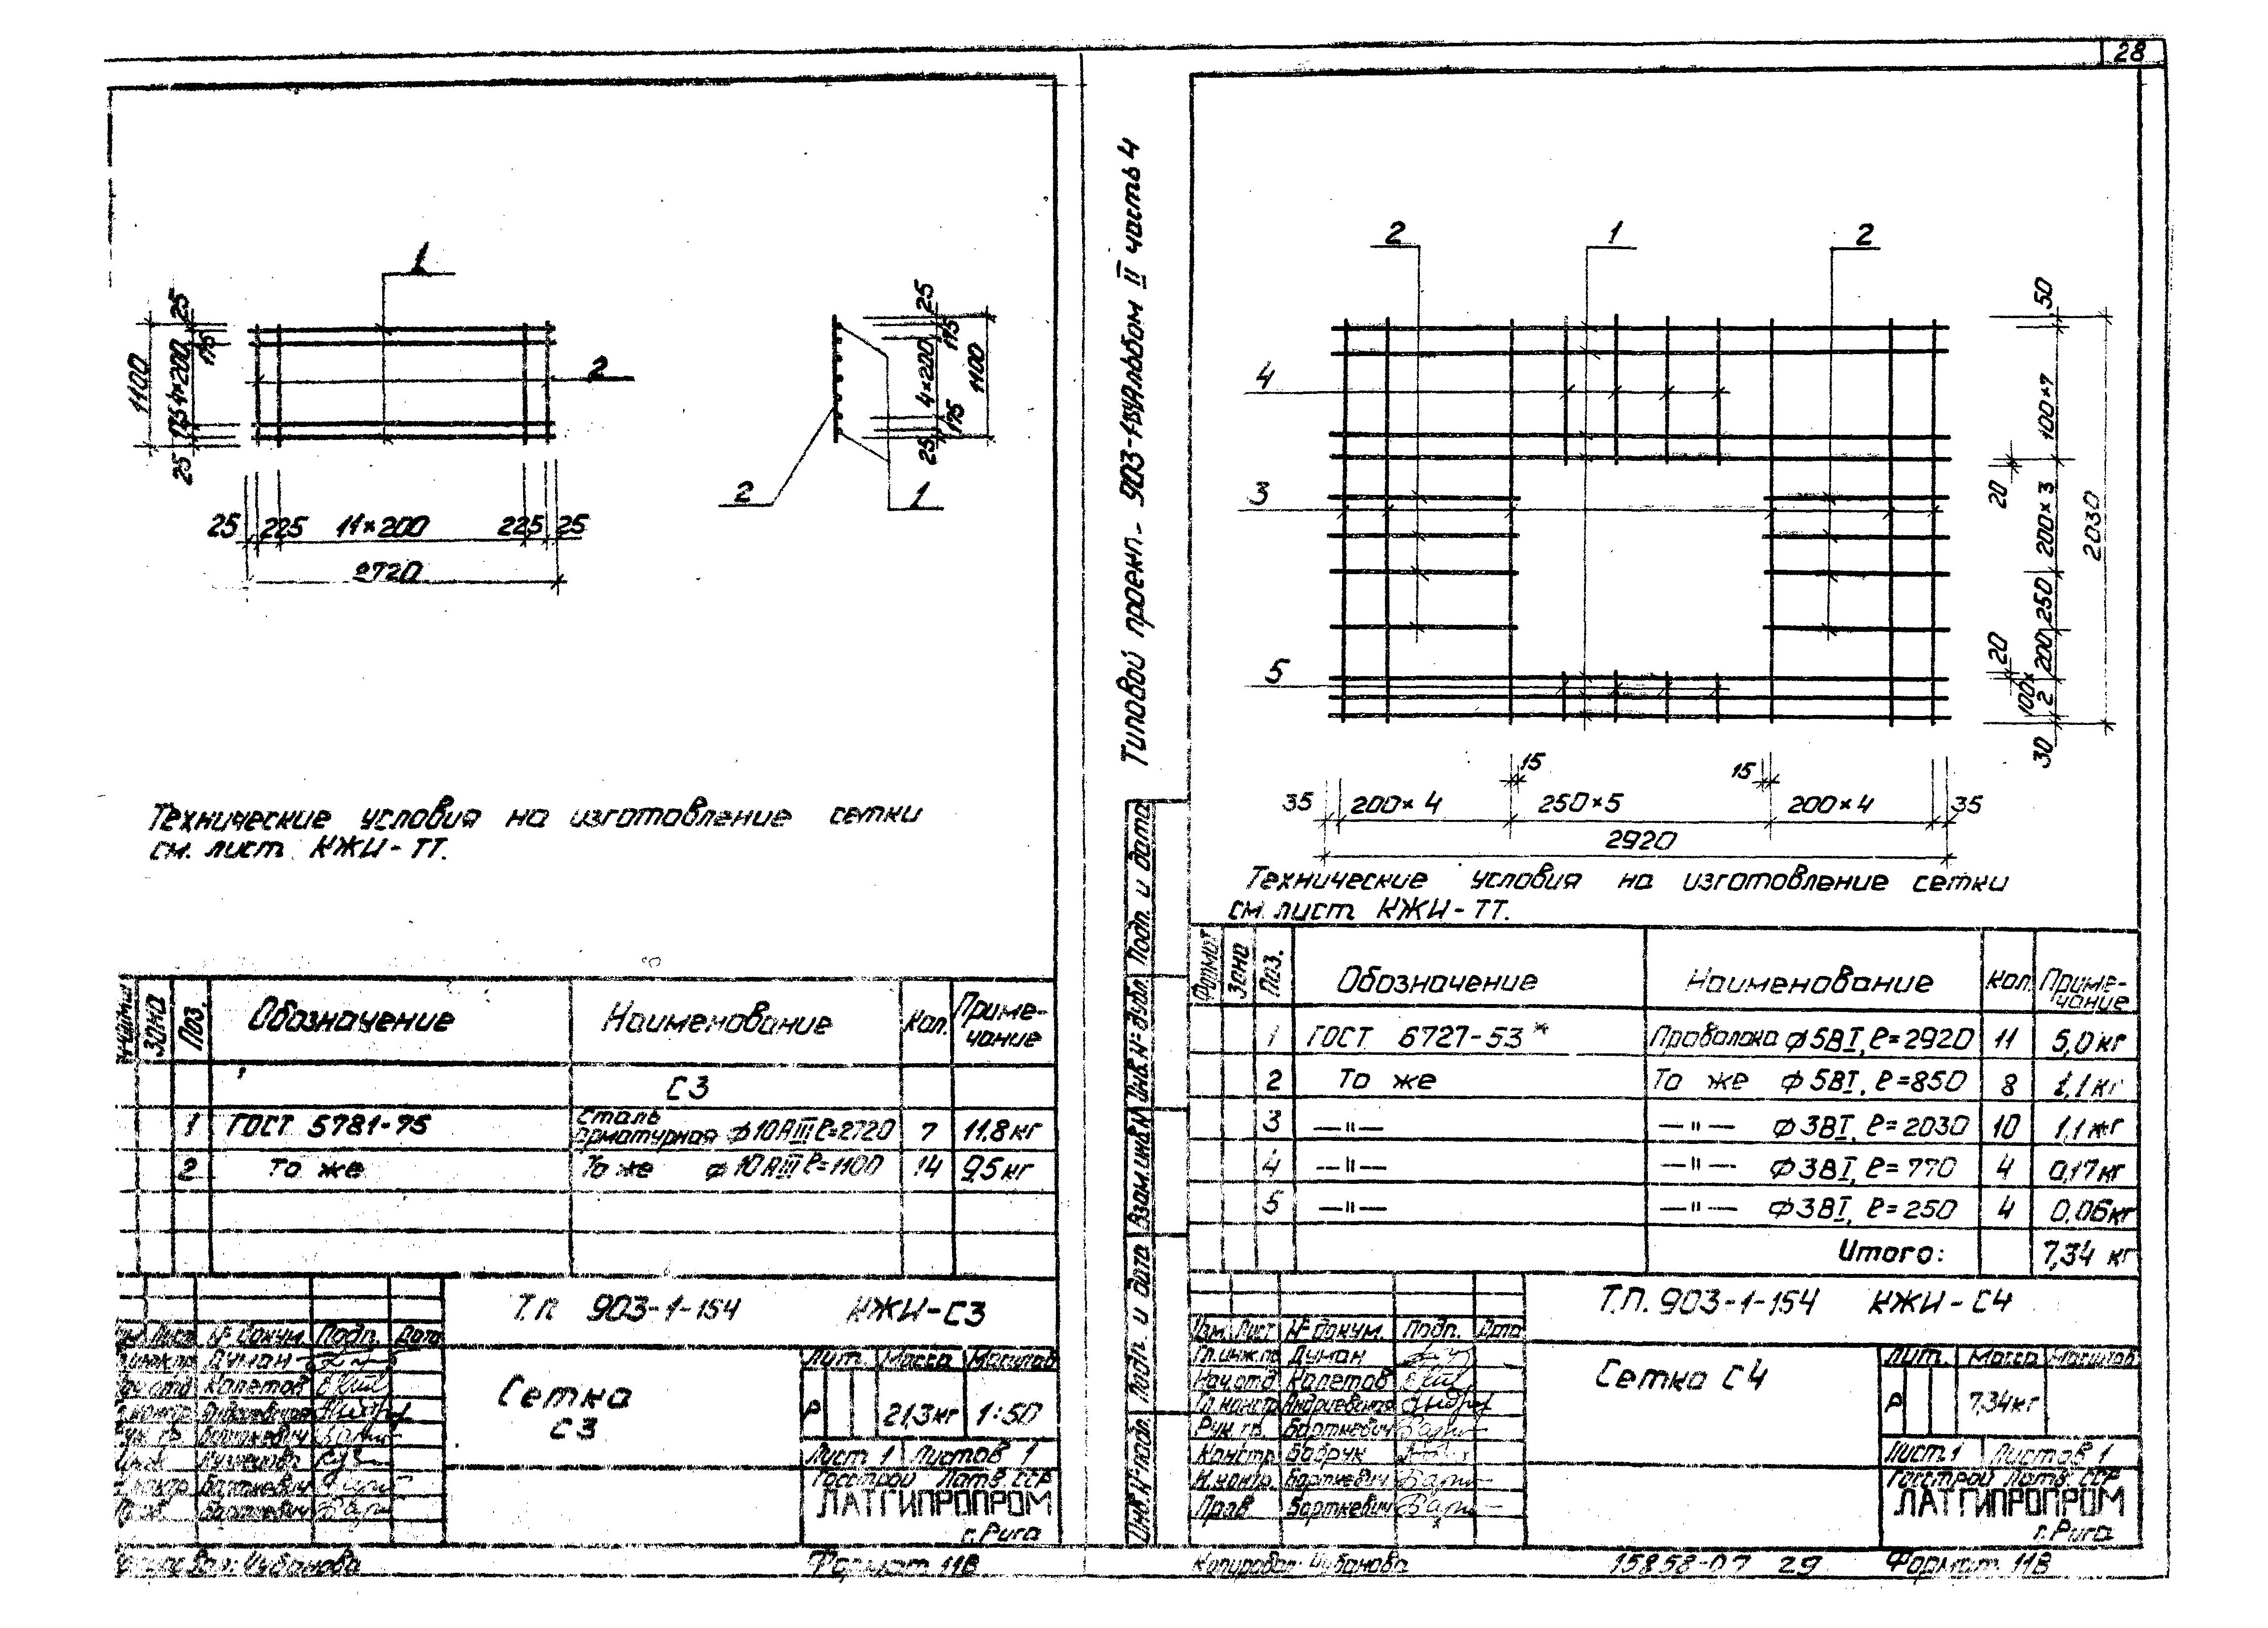 28
1
25
175
4×200
175
25
1100
2
25 225 11×200 225 25
2720
25
175
4×200
175
25
1100
2
1
Технические условия на изготовление сетки
см. лист КЖИ-ТТ.
Зона Поз. Обозначение Наименование Кол. Приме-
чание
С3
1 ГОСТ 5781-75 Сталь
арматурная ф10АIII ℓ=2720 7 11,8кг
2 То же То же ф10АIII ℓ=1100 14 9,5кг
Т.П. 903-1-154 КЖИ-С3
Лист № докум. Подп. Дата
Думан
Калетов
Барткевич
Барткевич
Барткевич
Сетка
С3
Лит. Масса Масштаб
Р 21,3кг 1:50
Лист 1 Листов 1
Госстрой Латв. ССР
ЛАТГИПРОПРОМ
г. Рига
Чубанова Формат 11В
Типовой проект- 903-1-154 Альбом II часть 4
Подп. и дата
Инв.№ дубл.
Взам.инв.№
Подп. и дата
Инв.№ подл.
2 1 2
4
3
5
50
100×7
20
200×3
250
200
20
100×
2
30
2030
15 15
35 200×4 250×5 200×4 35
2920
Технические условия на изготовление сетки
см. лист КЖИ-ТТ.
Формат Зона Поз. Обозначение Наименование Кол. Приме-
чание
1 ГОСТ 6727-53* Проволока ф5ВI, ℓ=2920 11 5,0кг
2 То же То же ф5ВI, ℓ=850 8 1,1кг
3 —"— —"— ф3ВI, ℓ=2030 10 1,1кг
4 —"— —"— ф3ВI, ℓ=770 4 0,17кг
5 —"— —"— ф3ВI, ℓ=250 4 0,06кг
Итого: 7,34 кг
Т.П. 903-1-154 КЖИ-С4
Изм. Лист № докум. Подп. Дата
Гл.инж.пр Думан
Нач.отд Калетов
Гл.констр Андриевская
Рук.гр. Барткевич
Констр. Бабрук
Н.контр. Барткевич
Пров. Барткевич
Сетка С4
Лит. Масса Масштаб
Р 7,34кг
Лист 1 Листов 1
Госстрой Латв. ССР
ЛАТГИПРОПРОМ
г. Рига
Копировал: Чубанова 15858-07 29 Формат 11В